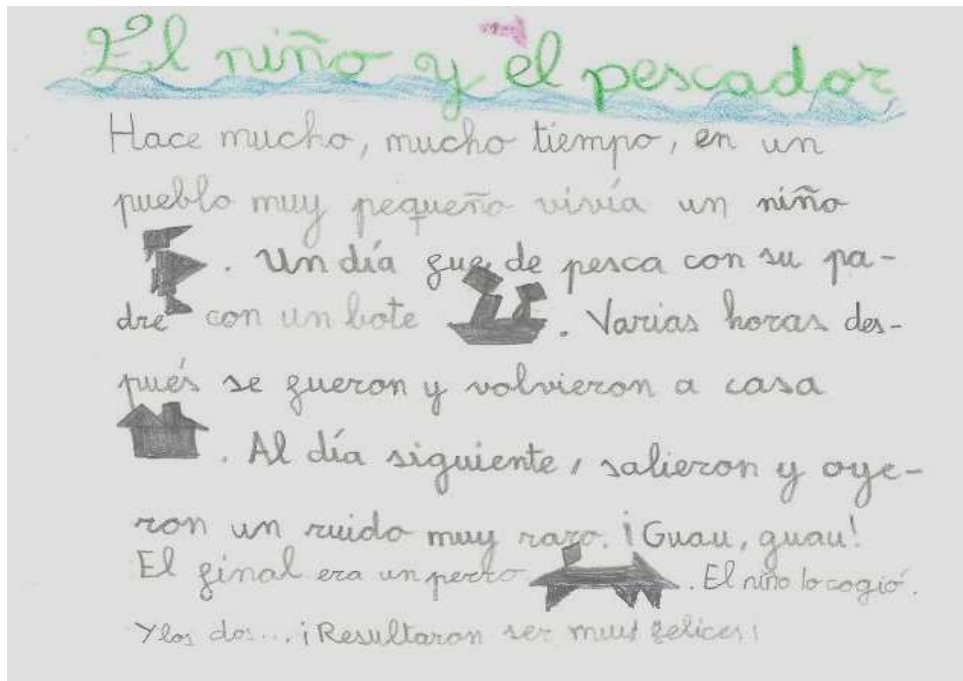 El niño y el pescador
Hace mucho, mucho tiempo, en un
pueblo muy pequeño vivía un niño
. Un día fue de pesca con su pa-
dre con un bote . Varias horas des-
pués se fueron y volvieron a casa
. Al día siguiente, salieron y oye-
ron un ruido muy raro. ¡Guau, guau!
El final era un perro . El niño lo cogió.
Y los dos... ¡Resultaron ser muy felices!